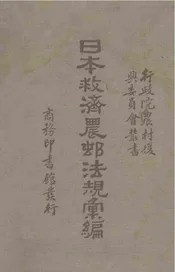 行政院農村復
興委員會叢書
日本救濟農邨法規彙編
商務印書館發行